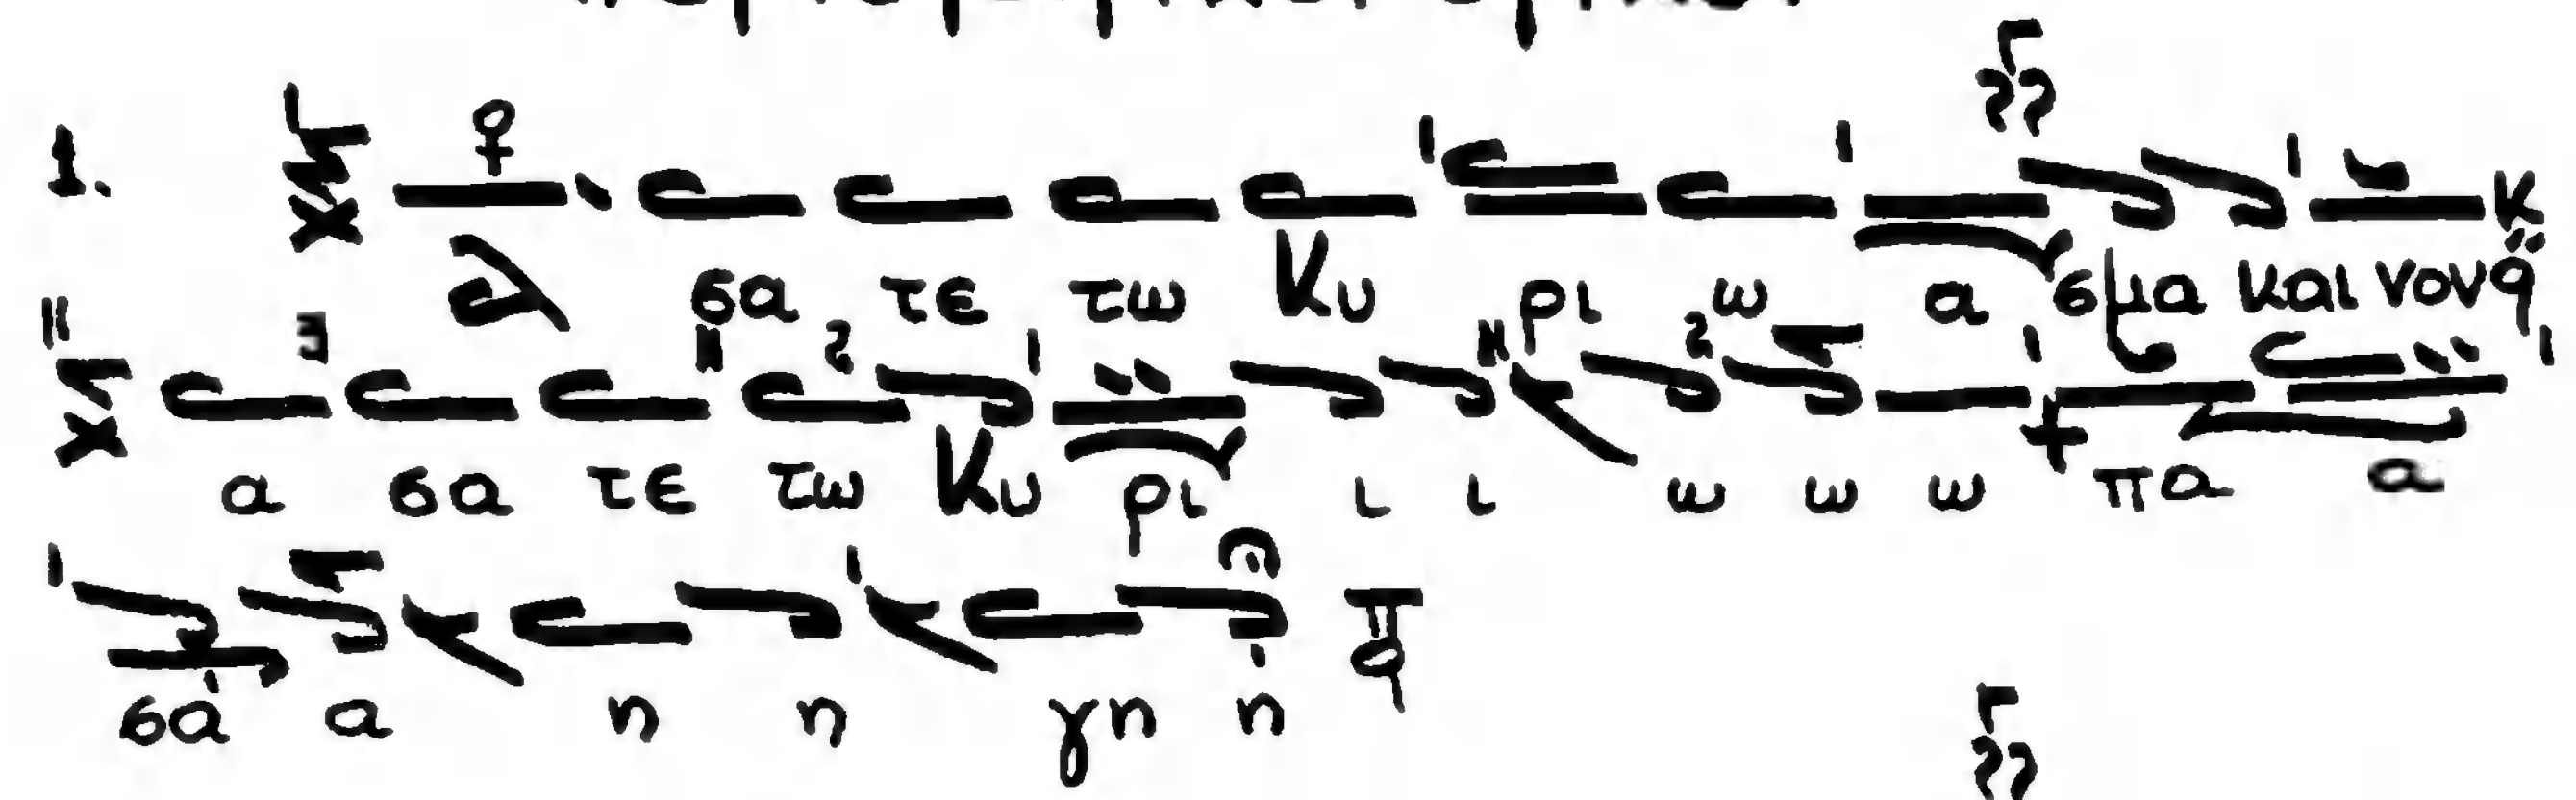 1. Α σα τε τω Κυ ρι ω α σμα και νον
α σα τε τω Κυ ρι ι ι ω ω ω πα α
σα α η η γη η